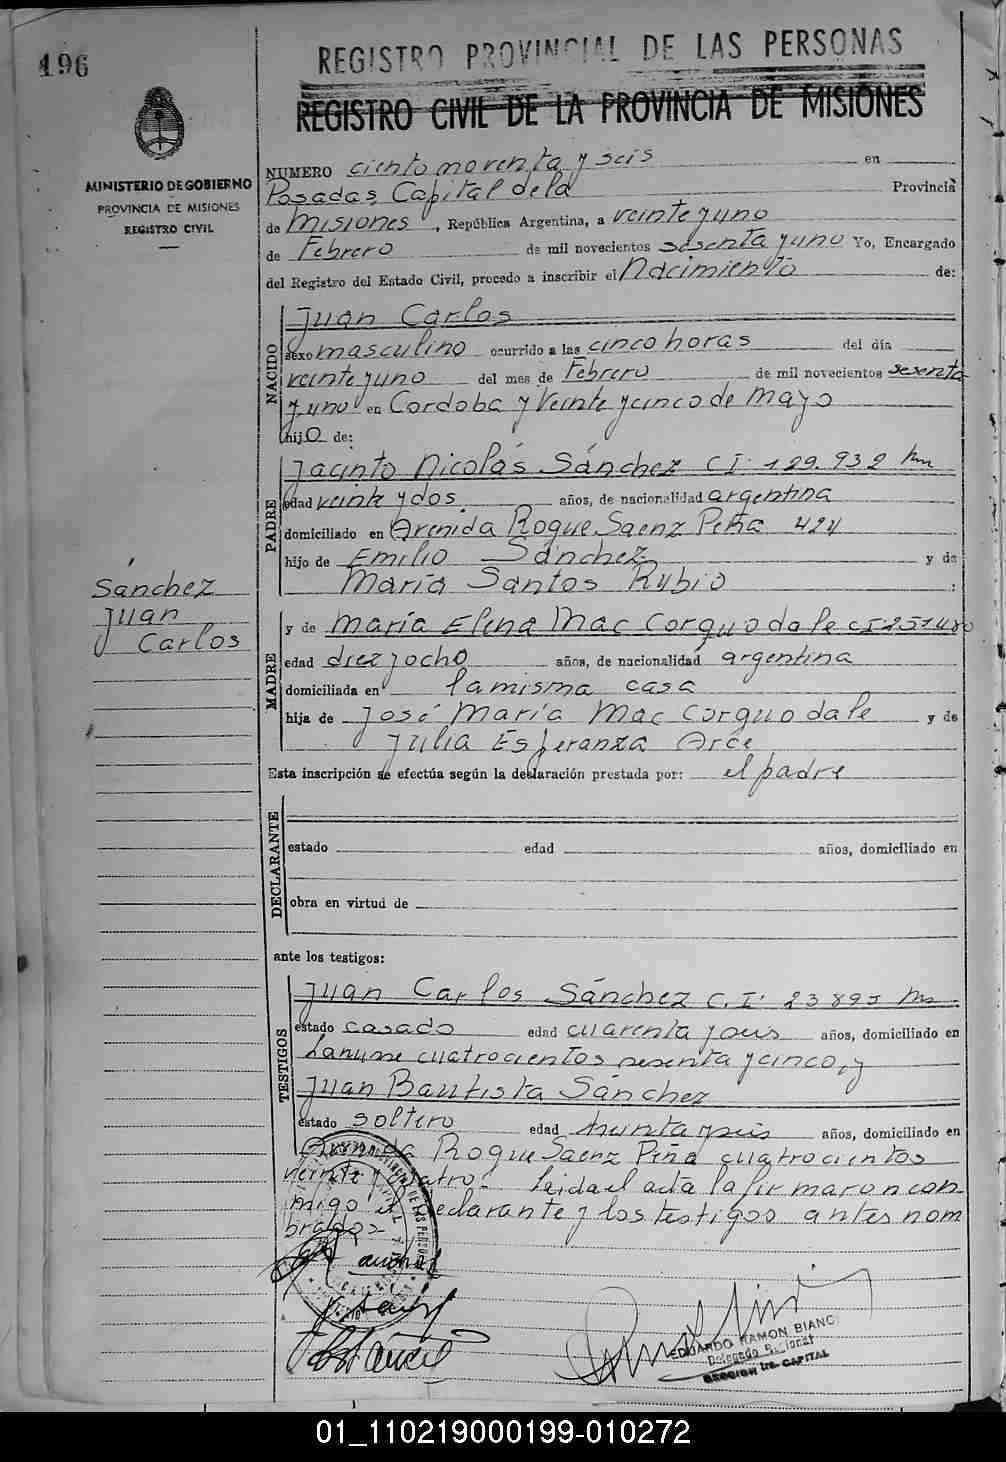 196
REGISTRO PROVINCIAL DE LAS PERSONAS
REGISTRO CIVIL DE LA PROVINCIA DE MISIONES
MINISTERIO DE GOBIERNO
PROVINCIA DE MISIONES
REGISTRO CIVIL
NUMERO ciento noventa y seis en
Posadas Capital de la Provincia
de Misiones, República Argentina, a veinte y uno
de Febrero de mil novecientos sesenta y uno Yo, Encargado
del Registro del Estado Civil, procedo a inscribir el Nacimiento de:
NACIDO
Juan Carlos
sexo masculino ocurrido a las cinco horas del día
veinte y uno del mes de Febrero de mil novecientos sesenta
y uno en Cordoba y Veinte y cinco de Mayo
hijo de:
PADRE
Jacinto Nicolás Sánchez C I. 129.932
edad veinte y dos años, de nacionalidad argentina
domiciliado en Avenida Roque Saenz Peña 424
hijo de Emilio Sánchez y de
María Santos Rubio :
Sánchez
Juan
Carlos
MADRE
y de María Elena Mac Corquodale C I 251480
edad diez y ocho años, de nacionalidad argentina
domiciliada en la misma casa
hija de José María Mac Corquodale y de
Julia Esperanza Arce
Esta inscripción se efectúa según la declaración prestada por: el padre
DECLARANTE
estado edad años, domiciliado en
obra en virtud de
ante los testigos:
TESTIGOS
Juan Carlos Sánchez C. I. 23895
estado casado edad cuarenta y seis años, domiciliado en
Lanusse cuatrocientos sesenta y cinco, y
Juan Bautista Sánchez
estado soltero edad treinta y seis años, domiciliado en
Avenida Roque Saenz Peña cuatrocientos
veinte y cuatro. Leida el acta la firmaron con
migo el declarante y los testigos antes nom
brados
EDUARDO RAMON BIANC
Delegado
SECCION 1ra. CAPITAL
01_110219000199-010272